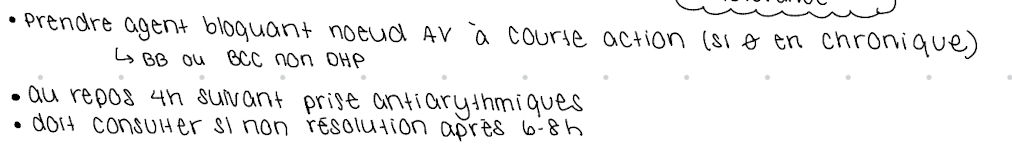 • prendre agent bloquant noeud AV à courte action (si ∅ en chronique)
↳ BB ou BCC non DHP
• au repos 4h suivant prise antiarythmiques
• doit consulter si non résolution après 6-8h